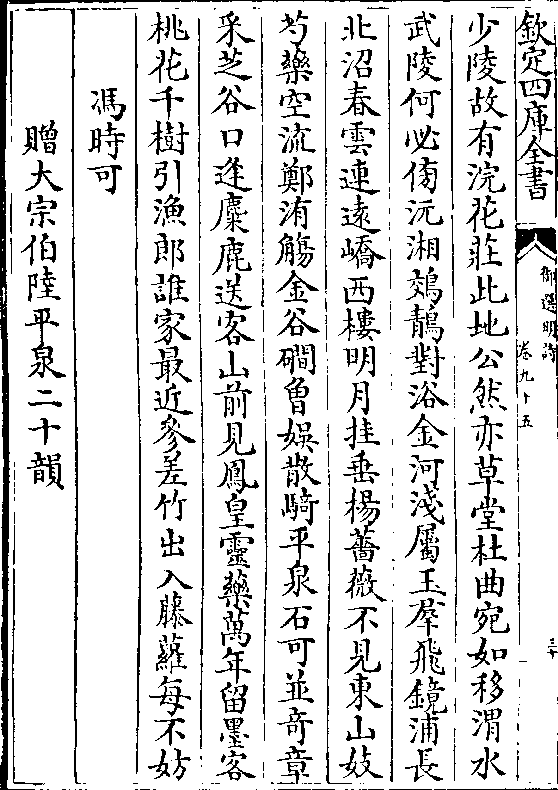 欽定四庫全書
御選明詩
卷九十五
三十
少陵故有浣花莊此地公然亦草堂杜曲宛如移渭水
武陵何必傍沅湘鵁鶄對浴金河淺屬玉羣飛鏡浦長
北沼春雲連遠嶠西樓明月挂垂楊薔薇不見東山妓
芍藥空流鄭洧觴金谷磵曾娛散騎平泉石可並奇章
采芝谷口逢麋鹿送客山前見鳳皇靈藥萬年留墨客
桃花千樹引漁郎誰家最近參差竹出入藤蘿每不妨
馮時可
贈大宗伯陸平泉二十韻